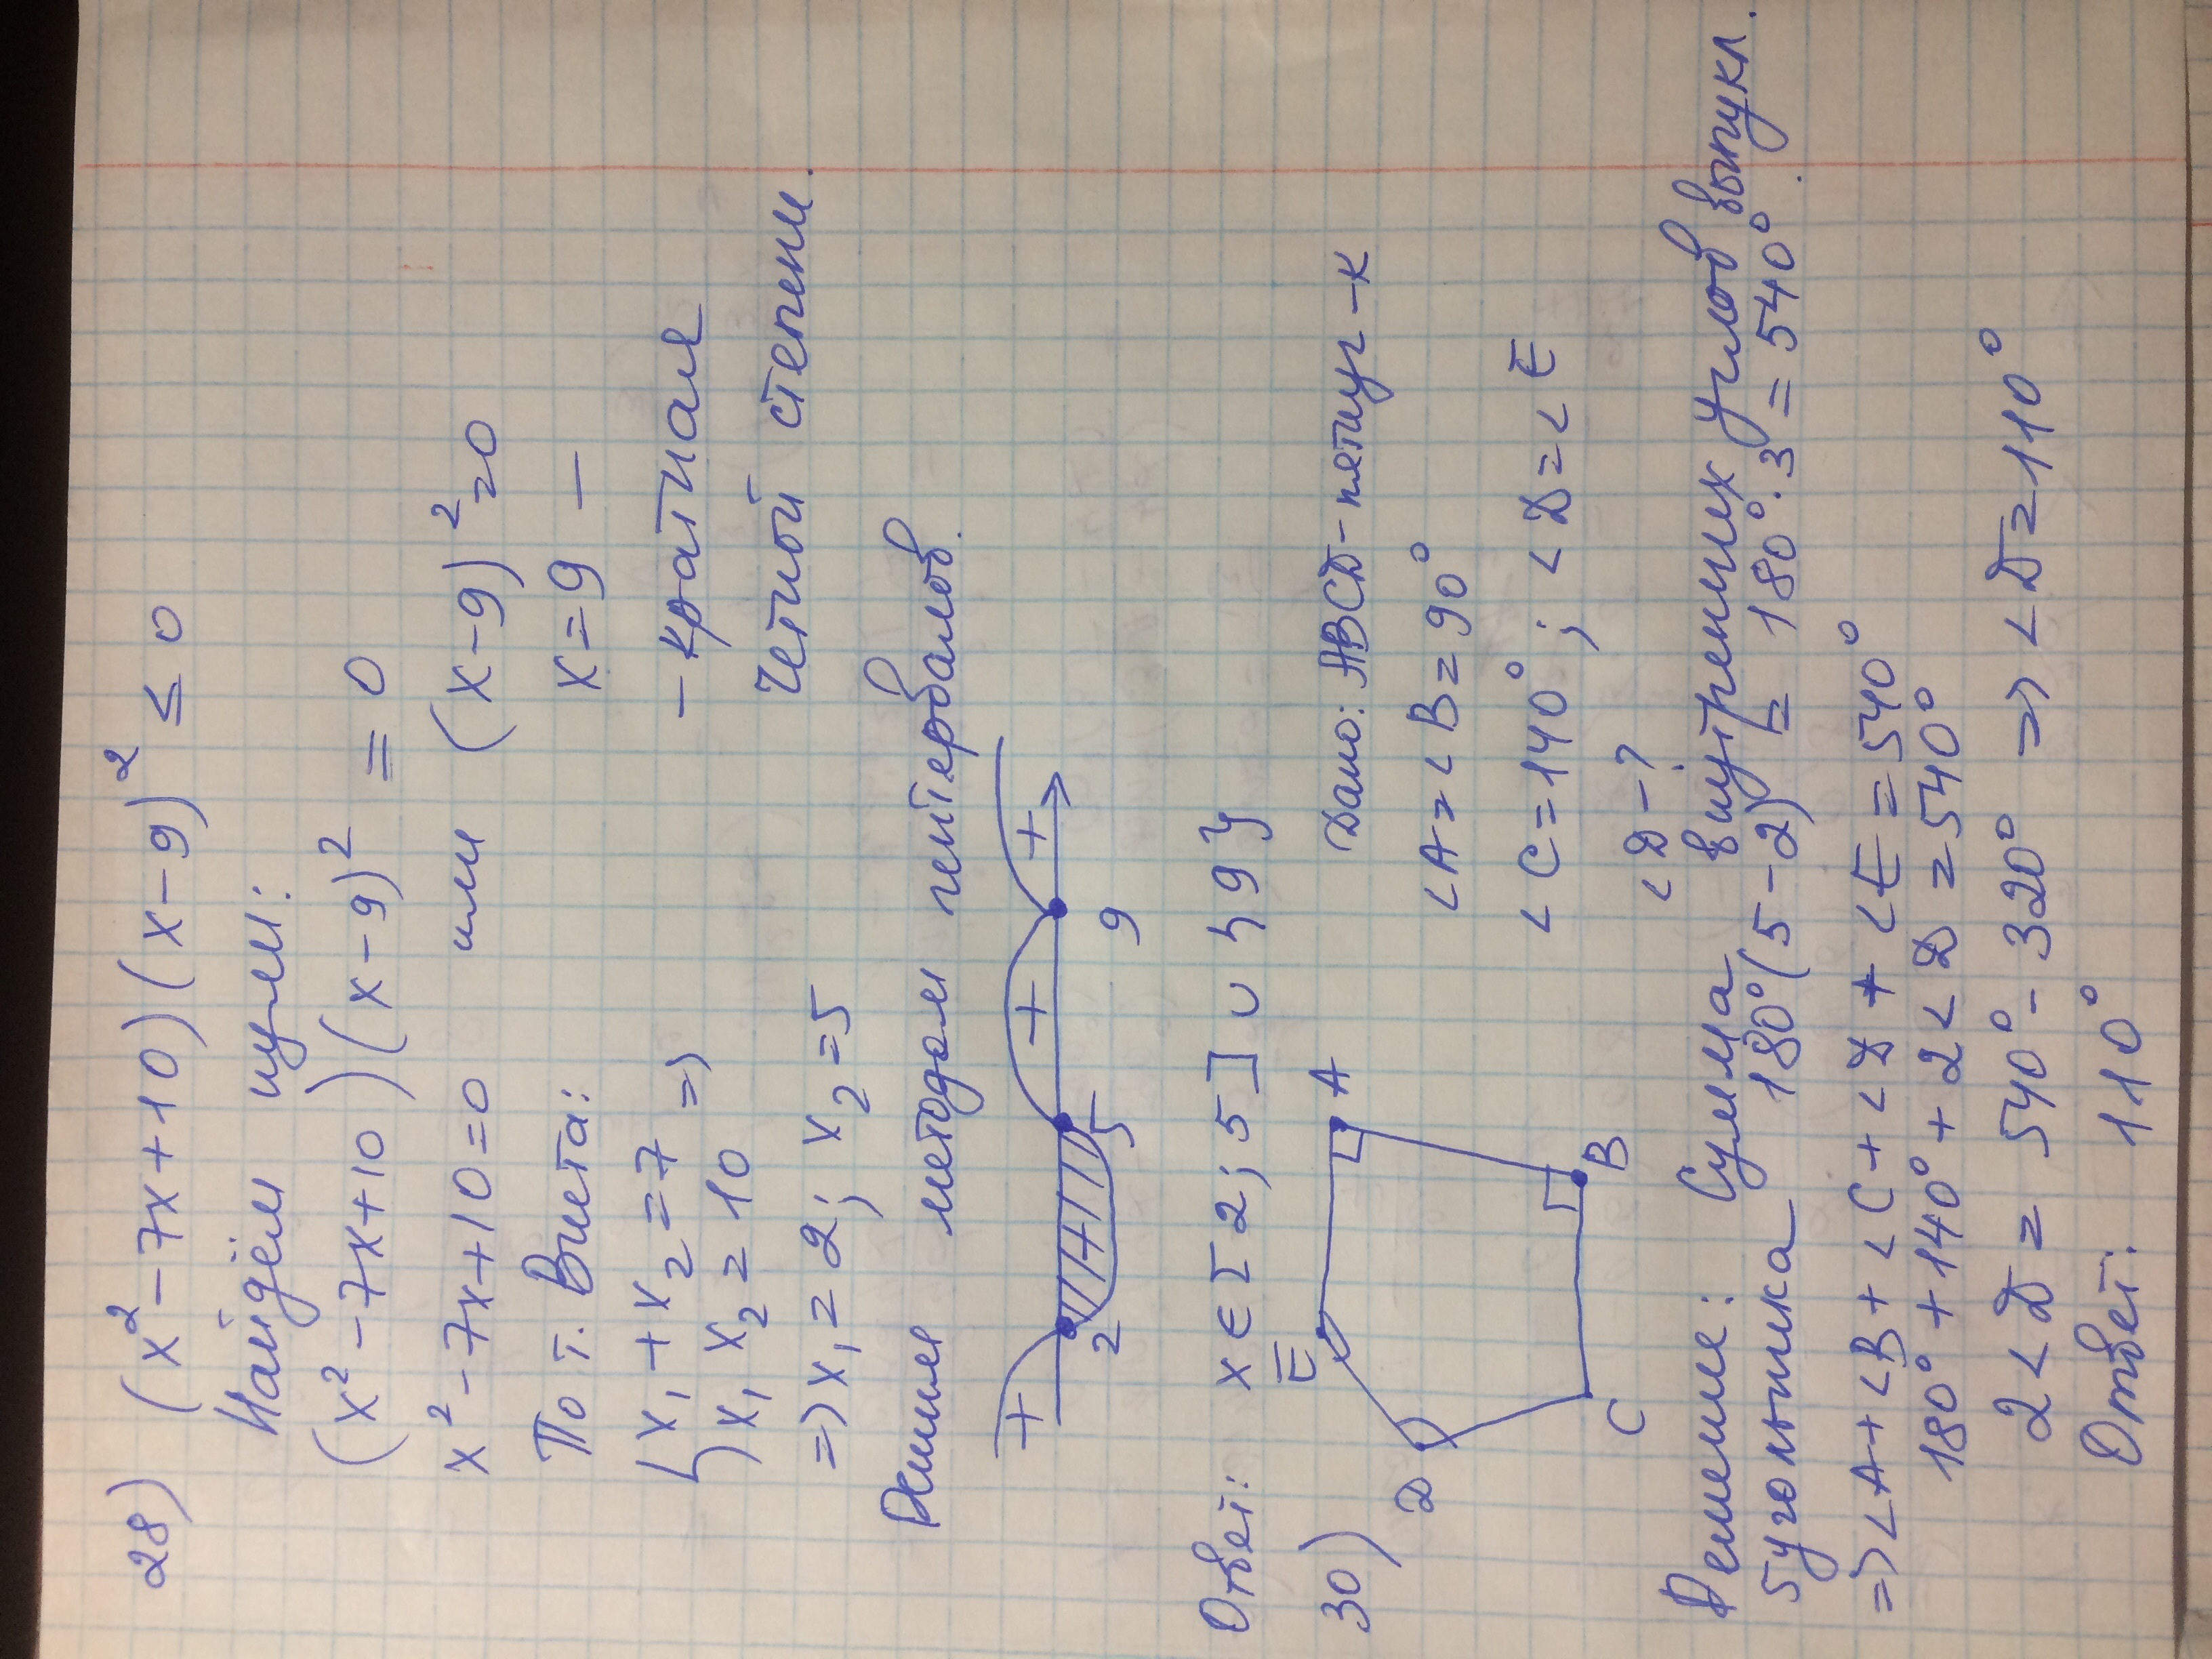 28) (x² - 7x + 10)(x - 9)² ≤ 0
Найдём нули:
(x² - 7x + 10)(x - 9)² = 0
x² - 7x + 10 = 0 или (x - 9)² = 0
По т. Виета: x = 9 -
{x₁ + x₂ = 7 - кратная
x₁ x₂ = 10 => четной степени.
=> x₁ = 2; x₂ = 5
Решим методом интервалов.
+ + +
2 5 9
Ответ: x ∈ [2; 5] ∪ {9}
30) E A Дано: ABCD - пятиуг-к
∠A = ∠B = 90°
D ∠C = 140°; ∠D = ∠E
C B ∠D - ?
Решение: Сумма внутренних углов выпукл.
5угольника 180°(5 - 2) = 180°·3 = 540°.
=> ∠A + ∠B + ∠C + ∠D + ∠E = 540°
180° + 140° + 2∠D = 540°
2∠D = 540° - 320° => ∠D = 110°
Ответ: 110°